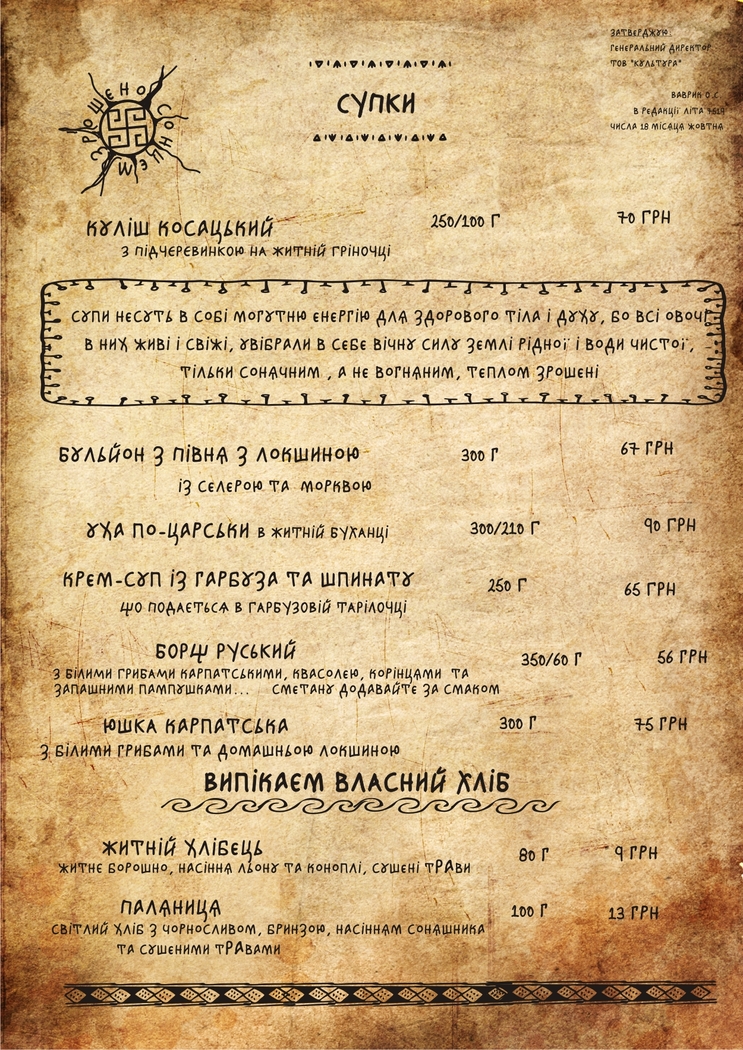 ЗАТВЕРДЖУЮ:
ГЕНЕРАЛЬНИЙ ДИРЕКТОР
ТОВ "КУЛЬТУРА"
ВАВРИК О.С.
В РЕДАКЦІЇ ЛІТА
ЧИСЛА 18 МІСАЦЯ ЖОВТНЯ
ЗРОШЕНО СОНЦЕМ
СУПКИ
КУЛІШ КОСАЦЬКИЙ 250/100 Г 70 ГРН
З ПІДЧЕРЕВИНКОЮ НА ЖИТНІЙ ГРІНОЧЦІ
СУПИ НЕСУТЬ В СОБІ МОГУТНЮ ЕНЕРГІЮ ДЛЯ ЗДОРОВОГО ТІЛА І ДУХУ, БО ВСІ ОВОЧІ
В НИХ ЖИВІ І СВІЖІ, УВІБРАЛИ В СЕБЕ ВІЧНУ СИЛУ ЗЕМЛІ РІДНОЇ І ВОДИ ЧИСТОЇ,
ТІЛЬКИ СОНЯЧНИМ , А НЕ ВОГНЯНИМ, ТЕПЛОМ ЗРОШЕНІ
БУЛЬЙОН З ПІВНЯ З ЛОКШИНОЮ 300 Г 67 ГРН
ІЗ СЕЛЕРОЮ ТА МОРКВОЮ
УХА ПО-ЦАРСЬКИ В ЖИТНІЙ БУХАНЦІ 300/210 Г 90 ГРН
КРЕМ-СУП ІЗ ГАРБУЗА ТА ШПИНАТУ 250 Г 65 ГРН
ЩО ПОДАЄТЬСЯ В ГАРБУЗОВІЙ ТАРІЛОЧЦІ
БОРЩ РУСЬКИЙ 350/60 Г 56 ГРН
З БІЛИМИ ГРИБАМИ КАРПАТСЬКИМИ, КВАСОЛЕЮ, КОРІНЦЯМИ ТА
ЗАПАШНИМИ ПАМПУШКАМИ... СМЕТАНУ ДОДАВАЙТЕ ЗА СМАКОМ
ЮШКА КАРПАТСЬКА 300 Г 75 ГРН
З БІЛИМИ ГРИБАМИ ТА ДОМАШНЬОЮ ЛОКШИНОЮ
ВИПІКАЄМ ВЛАСНИЙ ХЛІБ
ЖИТНІЙ ХЛІБЕЦЬ 80 Г 9 ГРН
ЖИТНЕ БОРОШНО, НАСІННЯ ЛЬОНУ ТА КОНОПЛІ, СУШЕНІ ТРАВИ
ПАЛЯНИЦЯ 100 Г 13 ГРН
СВІТЛИЙ ХЛІБ З ЧОРНОСЛИВОМ, БРИНЗОЮ, НАСІННЯМ СОНЯШНИКА
ТА СУШЕНИМИ ТРАВАМИ